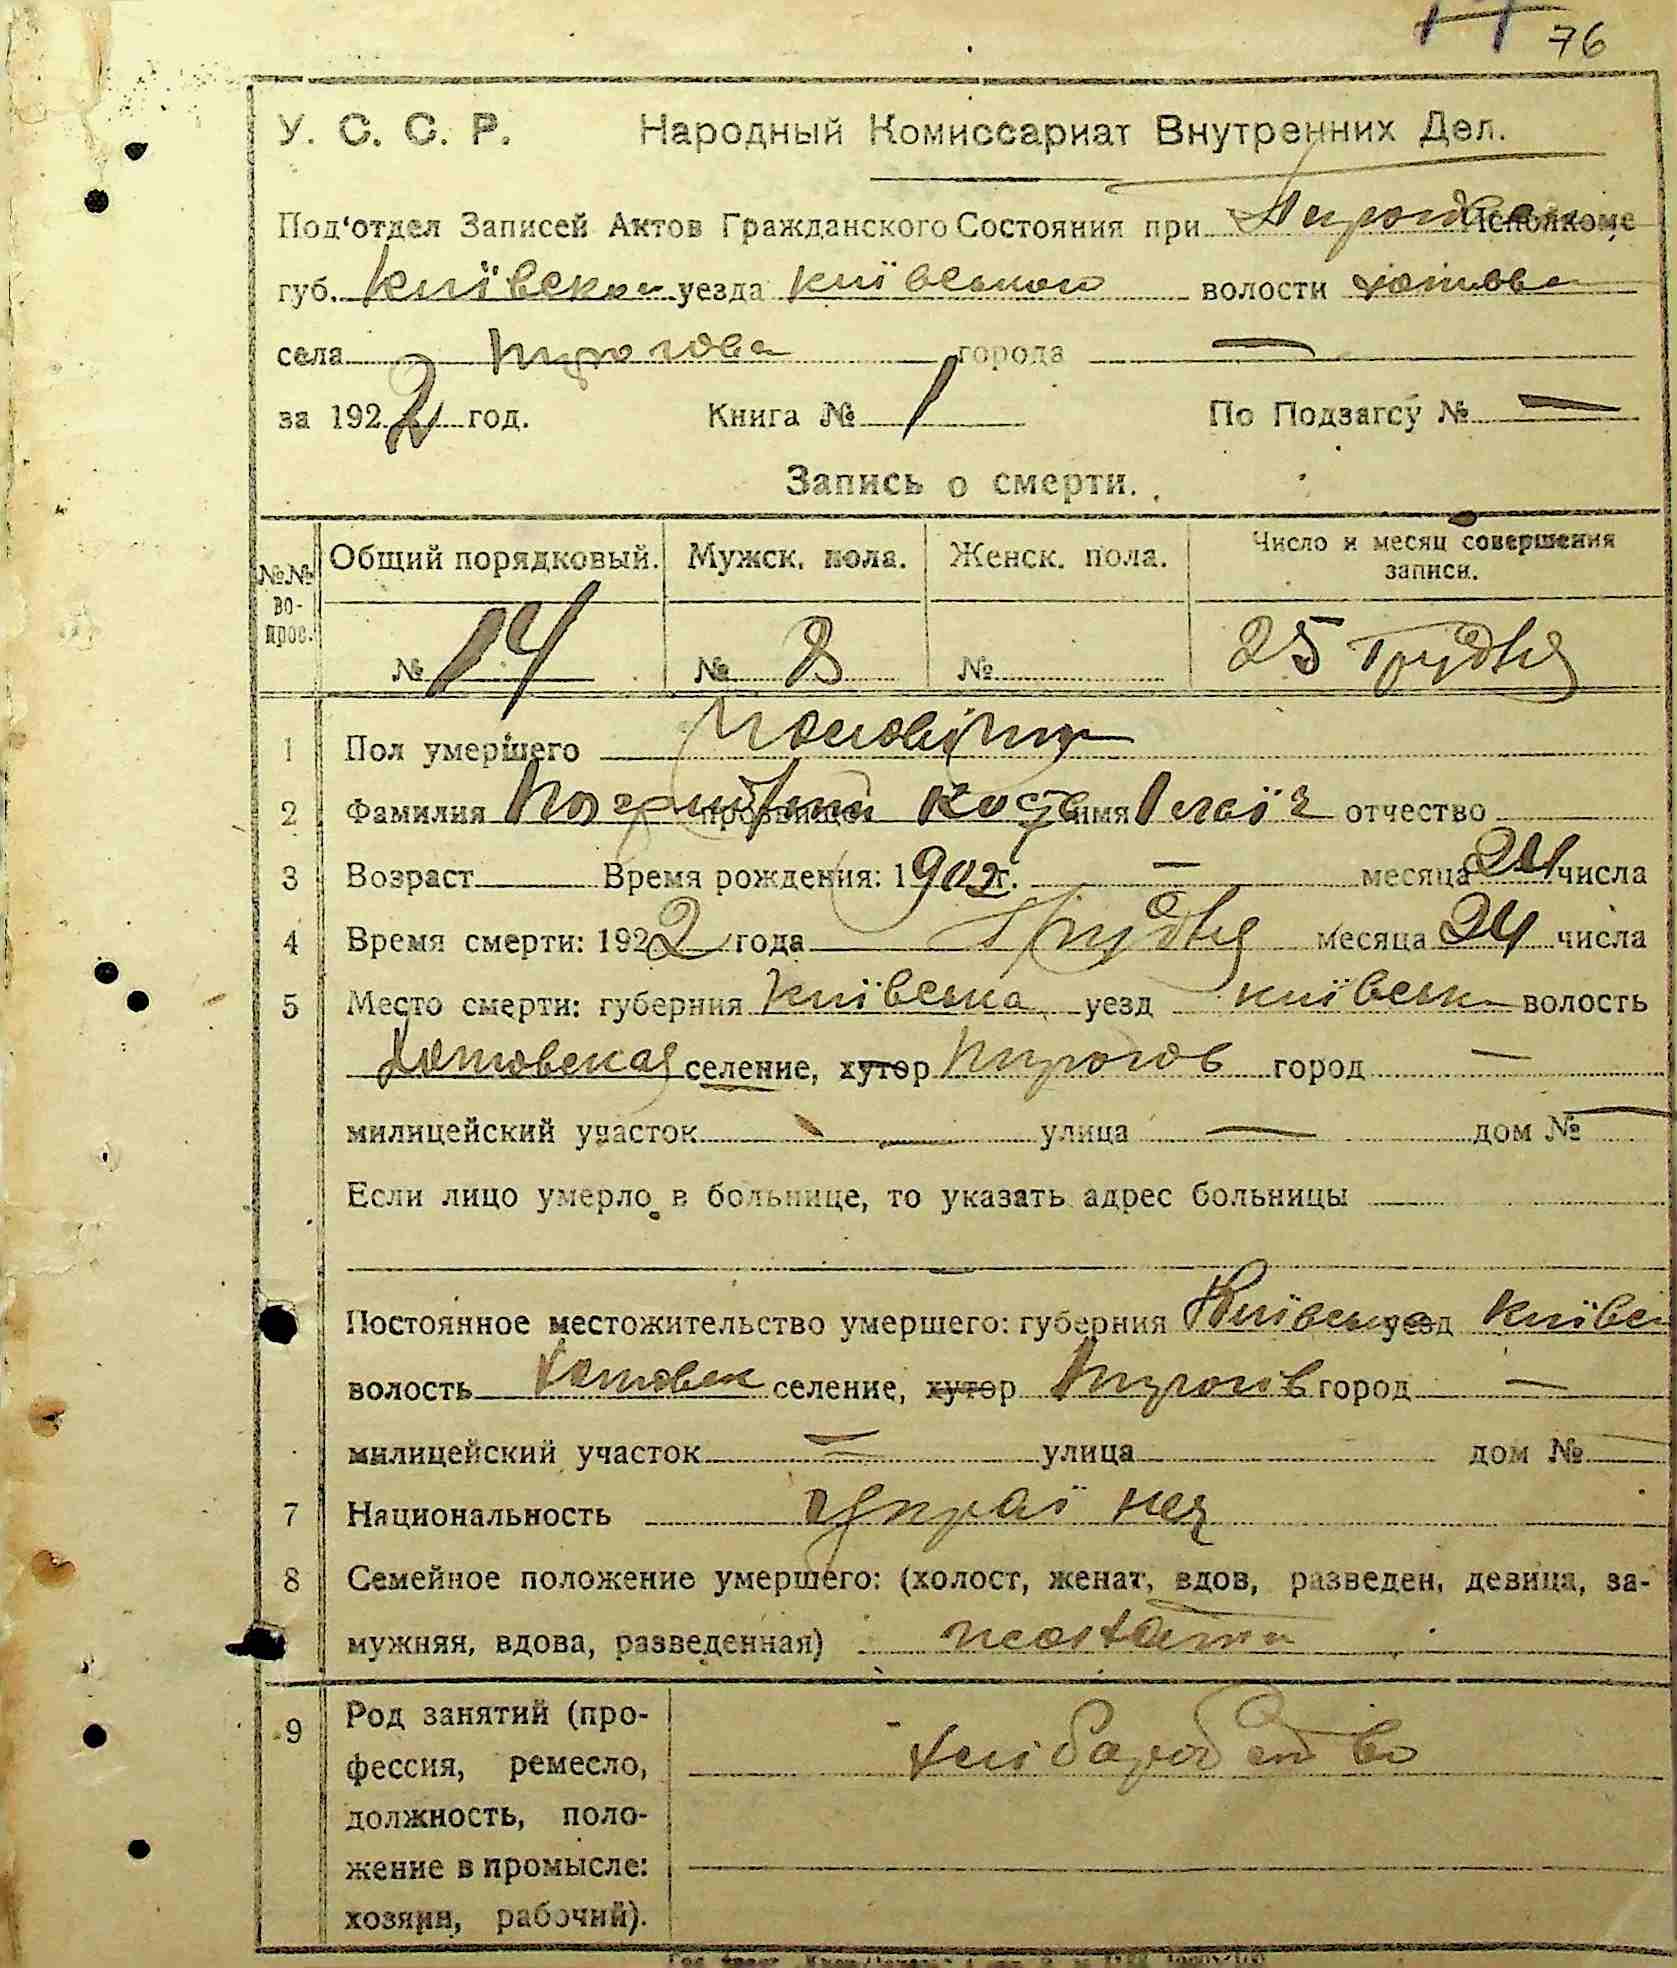 76
У. С. С. Р. Народный Комиссариат Внутренних Дел.
Под'отдел Записей Актов Гражданского Состояния при Исполкоме
губ. Київскои уезда київського волости
села Пирогова города —
за 1922 год. Книга № 1 По Подзагсу № —
Запись о смерти.
№№ во-прос. Общий порядковый. Мужск. пола. Женск. пола. Число и месяц совершения записи.
№ 14 № 8 № 25 Грудня
1 Пол умершего
2 Фамилия прозвище имя отчество
3 Возраст Время рождения: 1902 г. — месяца 24 числа
4 Время смерти: 1922 года Грудня месяца 24 числа
5 Место смерти: губерния Київська уезд київськ волость
Хотовская селение, хутор Пирогов город —
милицейский участок — улица — дом № —
Если лицо умерло в больнице, то указать адрес больницы
Постоянное местожительство умершего: губерния Київська уезд Київсь
волость Хотовск селение, хутор Пирогів город —
милицейский участок — улица дом №
7 Национальность
8 Семейное положение умершего: (холост, женат, вдов, разведен, девица, за-
мужняя, вдова, разведенная)
9 Род занятий (про-
фессия, ремесло, хлібаробство
должность, поло-
жение в промысле:
хозяин, рабочий).